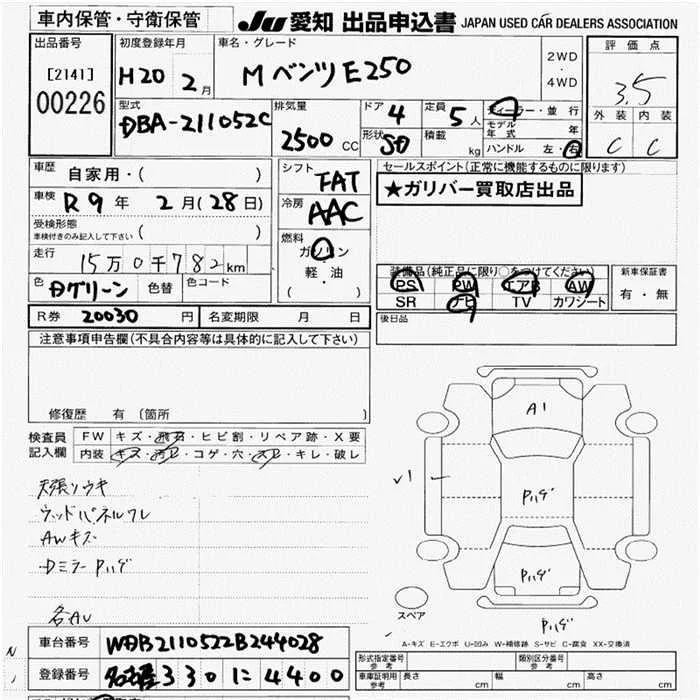 車内保管・守衛保管
JU 愛知 出品申込書 JAPAN USED CAR DEALERS ASSOCIATION
出品番号
[2141]
00226
初度登録年月
H20 2月
車名・グレード
Mベンツ E250
2WD
・
4WD
評価点
3.5
外装 内装
C C
型式
DBA-211052C
排気量
2500 CC
ドア 4
形状 SD
定員 5人
積載 kg
ディーラー・並行
モデル年式 年
ハンドル 左・右
車歴 自家用・( )
車検 R9年 2月(28日)
受検形態
車検付きのみ記入して下さい ( )
走行 15万0千782km
色 Dグリーン 色替 色コード
シフト FAT
冷房 AAC
燃料
ガソリン
軽・油
( )
セールスポイント(正常に機能するものに限ります)
★ガリバー買取店出品
装備品(純正品に限り○をつけてください)
PS PW エアB AW
SR ナビ TV カワシート
新車保証書
有・無
R券 20030円 名変期限 月 日
後日品
注意事項申告欄(不具合内容等は具体的に記入して下さい)
修復歴 有 (箇所 )
検査員記入欄
FW キズ・飛石・ヒビ割・リペア跡・X要
内装 キズ・汚レ・コゲ・穴・スレ・キレ・破レ
天張ソウキ
ウッドパネルワレ
AWキズ
Dミラー Pハゲ
名AU
A1
Pハゲ
Pハゲ
Pハゲ
スペア
A-キズ E-エクボ U-凹み W-補修跡 S-サビ C-腐食 XX-交換済
車台番号 WDB2110522B244028
登録番号 名古屋330に4400
形式指定番号
参考
類別区分番号
参考
車庫証明用
参考
長さ cm 幅 cm 高さ cm